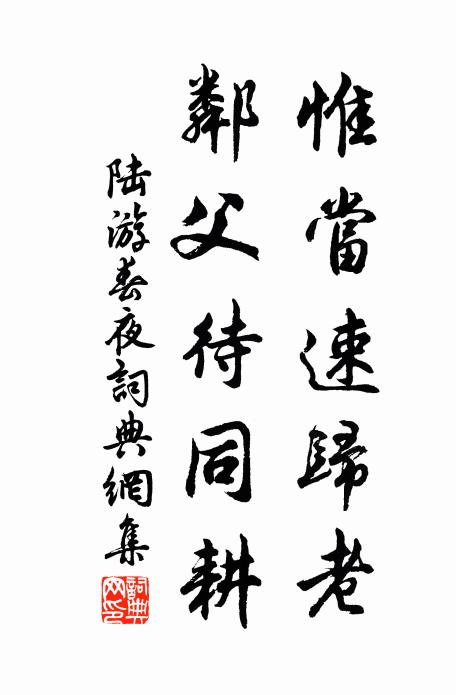 惟當速歸老
鄰父待同耕
陸游春夜詞典網集